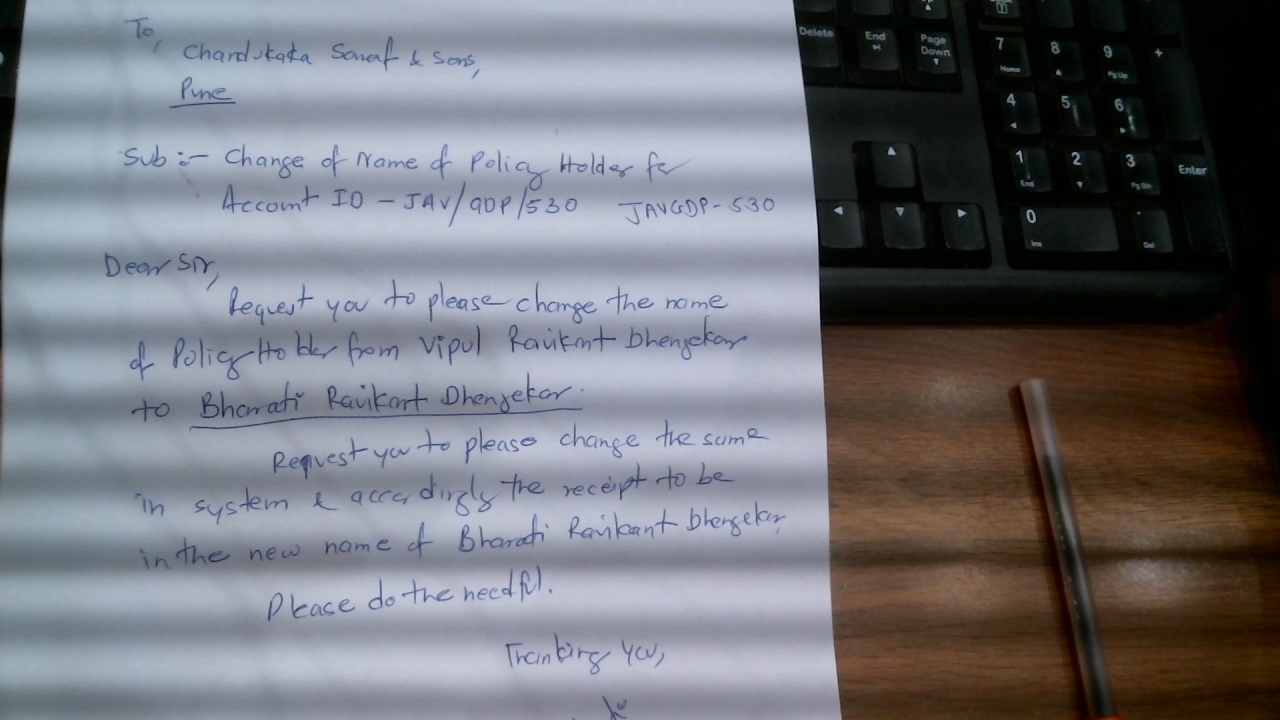 To,
Chandukaka Saraf & Sons,
Pune
Sub :- Change of Name of Policy Holder for
Account ID - JAV/GDP/530 JAVGDP-530
Dear Sir,
Request you to please change the name
of Policy Holder from Vipul Ravikant Dhengekar
to Bharati Ravikant Dhengekar.
Request you to please change the same
in system & accordingly the receipt to be
in the new name of Bharati Ravikant Dhengekar
Please do the needful.
Thanking You,
Delete End Page Down
7 Home 8 9 Pg Up +
4 5 6
1 End 2 3 Pg Dn Enter
0 Ins . Del